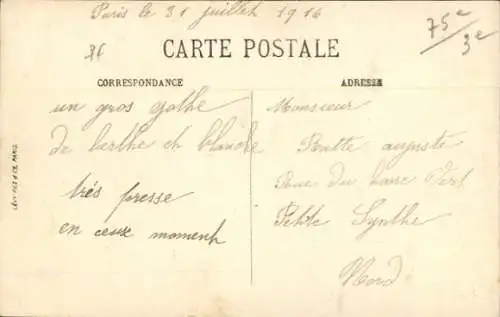 Paris le 31 juillet 1916
75e
3e
36
CARTE POSTALE
CORRESPONDANCE
ADRESSE
un gros gothe
de barthe et blanche
très presse
en ceux moment
Monsieur
Routte auguste
Rue du
Petite Synthe
Nord